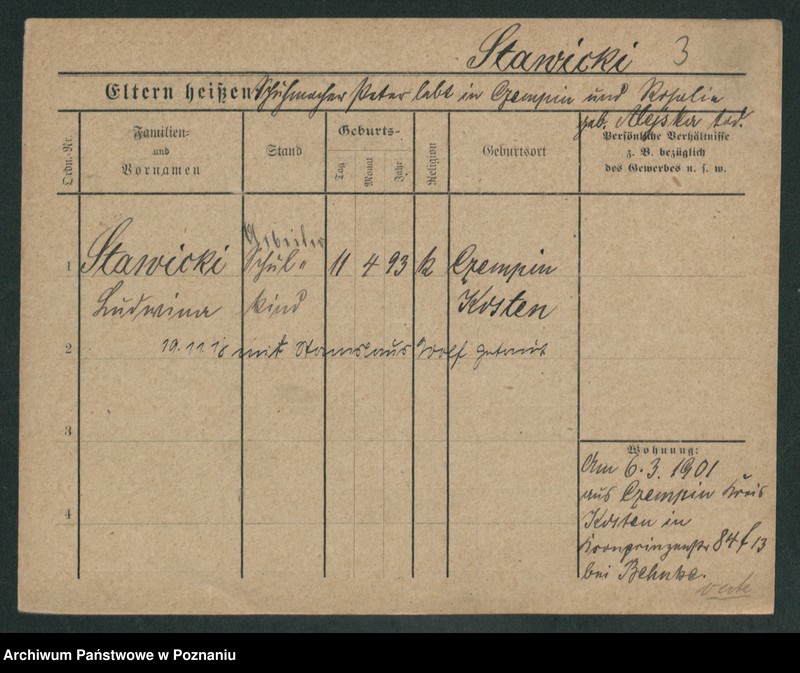 Stawicki 3
Eltern heißen Schuhmacher Peter lebt in Czempin und Rosalie
geb. Alejska tod.
Ordn.-Nr.
Familien-
und
Vornamen
Stand
Geburts-
Tag
Monat
Jahr
Religion
Geburtsort
Persönliche Verhältnisse
z. B. bezüglich
des Gewerbes u. s. w.
Arbeiter
1 Stawicki Schul- 11 4 93 k Czempin
Ludwina kind Kosten
2 19.11.18 mit Stanislaus Wolf getraut
3
4
Wohnung:
Am 6.3.1901
aus Czempin Kreis
Kosten in
Kronprinzenstr 84 f 13
bei Behnke.
Archiwum Państwowe w Poznaniu